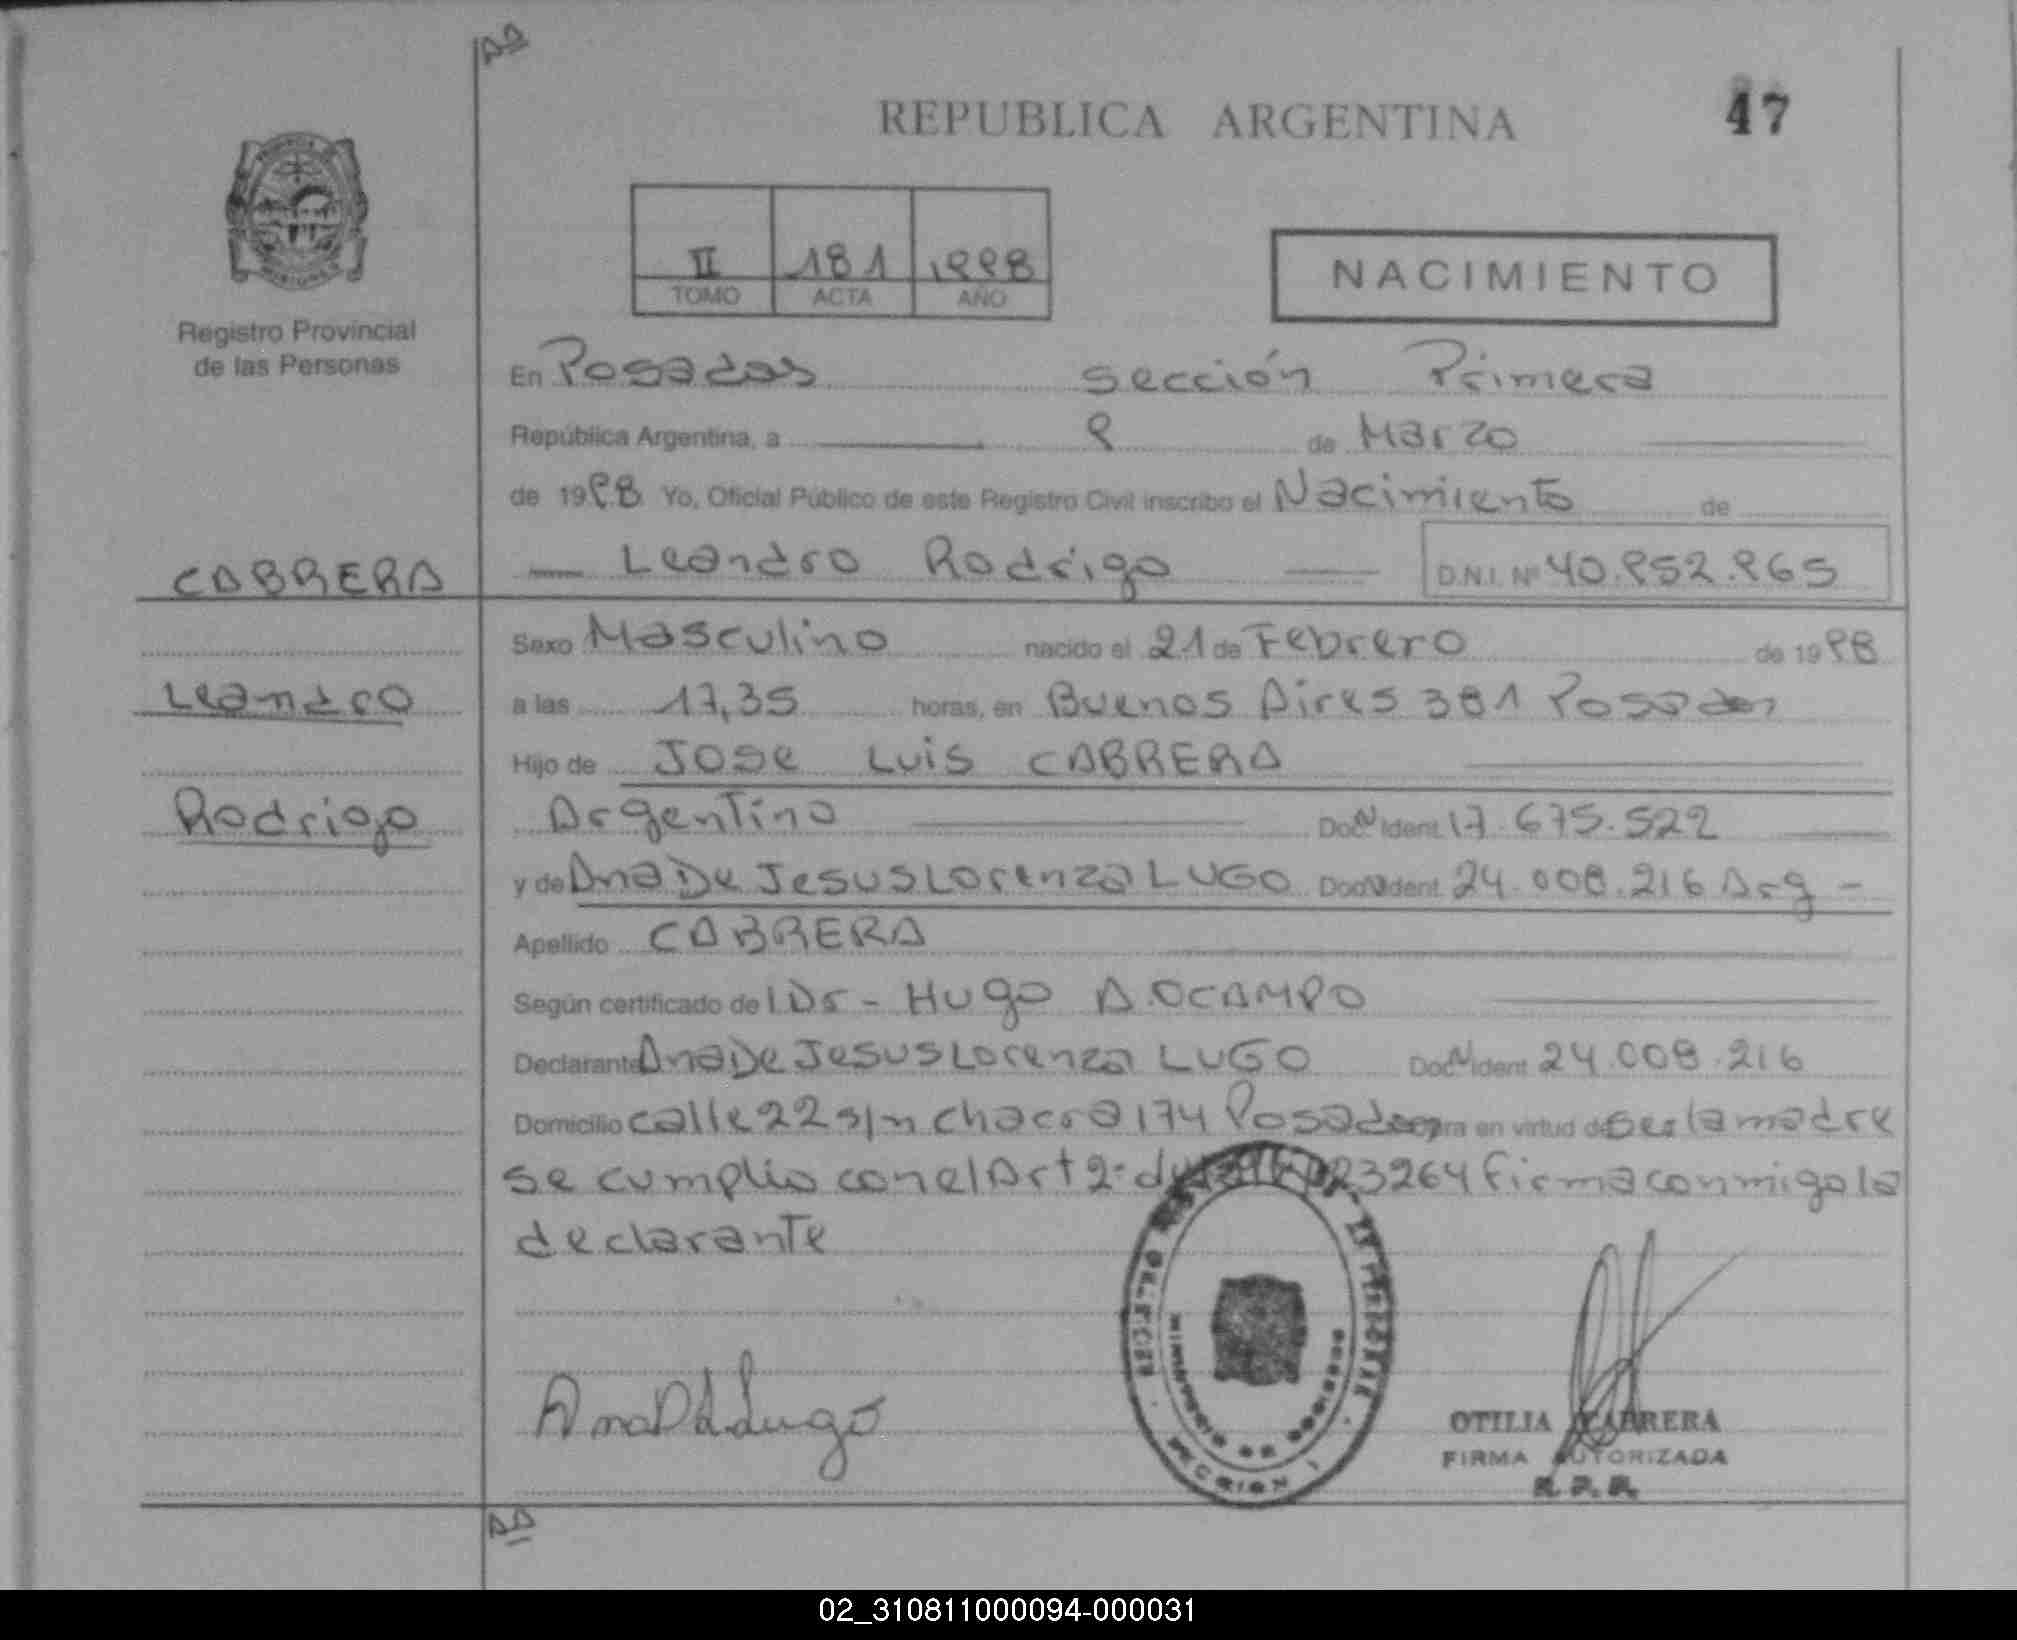 REPUBLICA ARGENTINA
47
II 181 1998
TOMO ACTA AÑO
NACIMIENTO
Registro Provincial
de las Personas
En Posadas sección Primera
República Argentina, a 9 de Marzo
de 1998 Yo, Oficial Público de este Registro Civil inscribo el Nacimiento de
CABRERA
Leandro Rodrigo D.N.I. Nº 40.952.965
Sexo Masculino nacido el 21 de Febrero de 1998
Leandro
a las 17,35 horas, en Buenos Aires 381 Posadas
Hijo de JOSE LUIS CABRERA
Rodrigo
Argentino Doc Ident. 17.675.522
y de Ana De Jesus Lorenza LUGO Doc Ident. 24.008.216 Arg -
Apellido CABRERA
Según certificado de l Dr - Hugo A. OCAMPO
Declarante Ana De Jesus Lorenza LUGO Doc Ident 24.008.216
Domicilio calle 22 s/n chacra 174 Posadas en virtud de ser la madre
se cumplio con el Art 2: 23264 firma conmigo la
declarante
Ana D L Lugo
SECCION 1
OTILIA CABRERA
FIRMA AUTORIZADA
R.P.P.
02_310811000094-000031